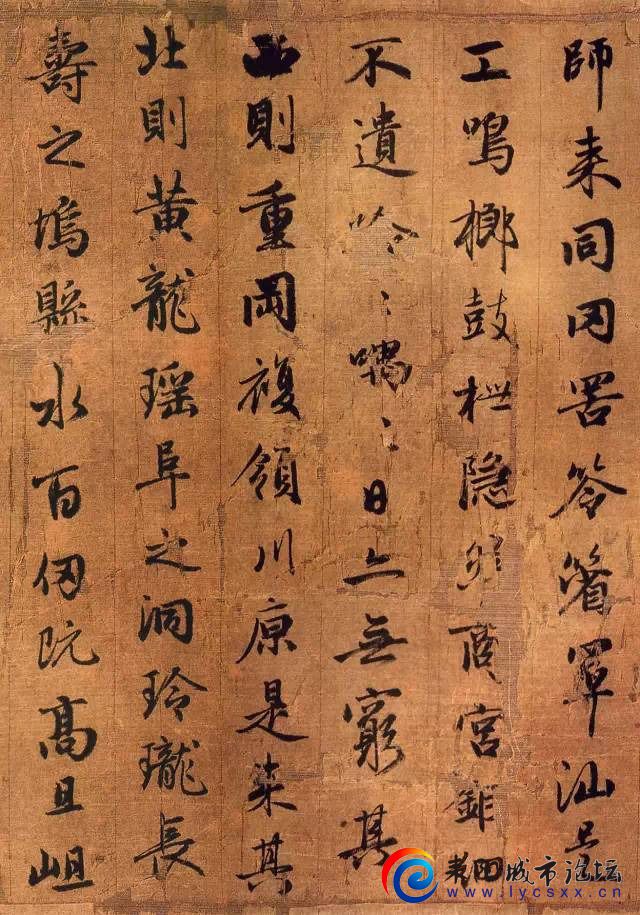 師来同罔罟笭箵罩汕是
工鳴榔鼓枻隐商宮鉅
不遺唅〻喁〻日亦無窮其
西則重岡複領川原是束其
北則黄龍瑶阜之洞玲瓏長
壽之塢縣水百仞阬高且岨
耒阳城市论坛
www.lycsxx.cn